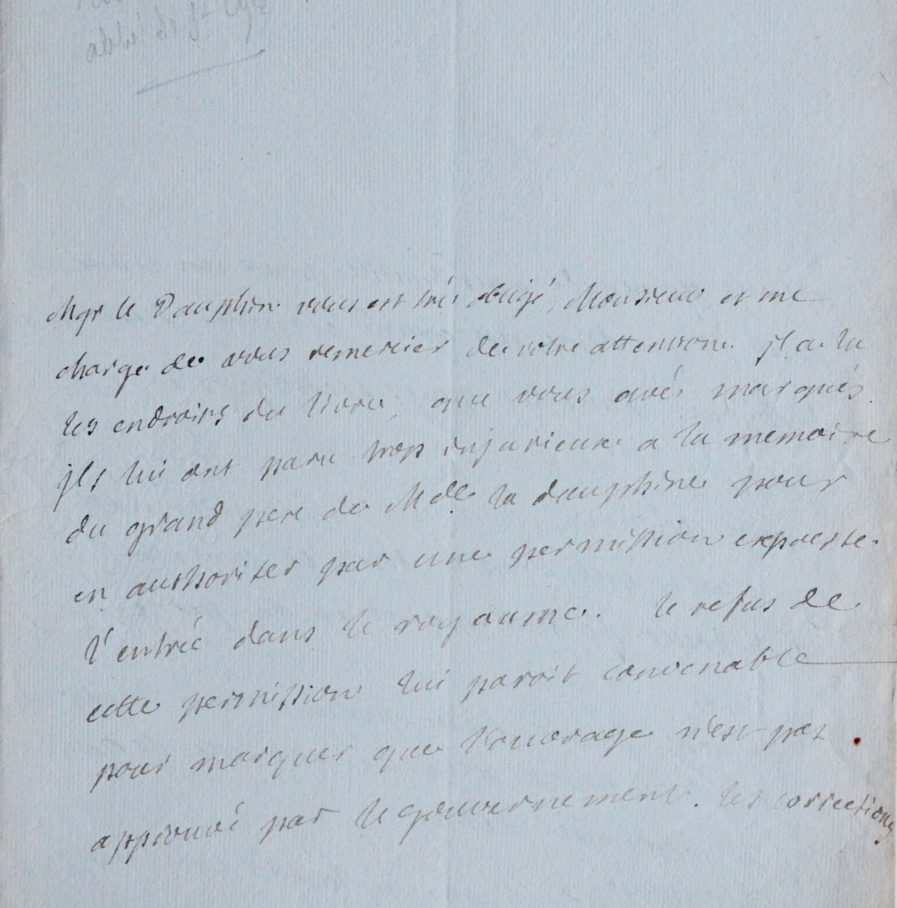 abbé de St Cyr
Mgr le Dauphin vous est très obligé, Monsieur, et me
charge de vous remercier de votre attention. il a lu
les endroits du livre, que vous avés marqués.
ils lui ont paru trop injurieux a la memoire
du grand pere de Mde la dauphine pour
en authoriser par une permission expresse
l'entrée dans le royaume. le refus de
cette permission lui paroit convenable
pour marquer que l'ouvrage n'est pas
approuvé par le gouvernement. les corrections